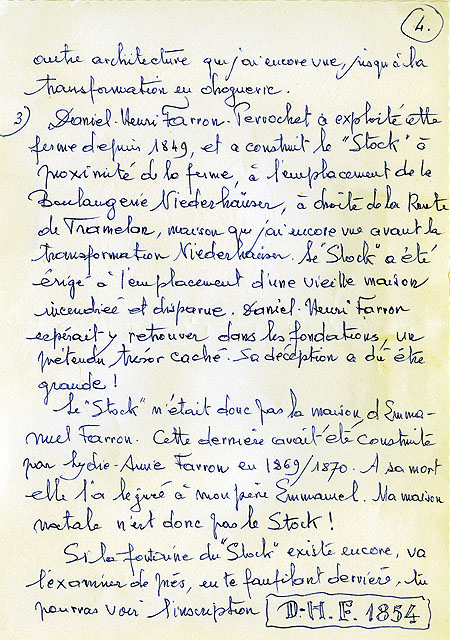 4.
autre architecture que j'ai encore vue, jusqu'à la
transformation en droguerie.
3) Daniel-Henri Farron-Perrochet a exploité cette
ferme depuis 1849, et a construit le "Stock" à
proximité de la ferme, à l'emplacement de la
Boulangerie Niederhäuser, à droite de la Route
de Tramelan, maison que j'ai encore vue avant la
transformation Niederhäuser. Le "Stock" a été
érigé à l'emplacement d'une vieille maison
incendiée et disparue. Daniel-Henri Farron
espérait y retrouver dans les fondations, un
prétendu trésor caché. Sa déception a dû être
grande!
Le "Stock" n'était donc pas la maison d'Emma-
nuel Farron. Cette dernière avait été construite
par Lydie-Annie Farron en 1869/1870. A sa mort
elle l'a légué à mon père Emmanuel. Ma maison
natale n'est donc pas le Stock!
Si la fontaine du "Stock" existe encore, va
l'examiner de près, en te faufilant derrière, tu
pourras voir l'inscription D.H.F. 1854